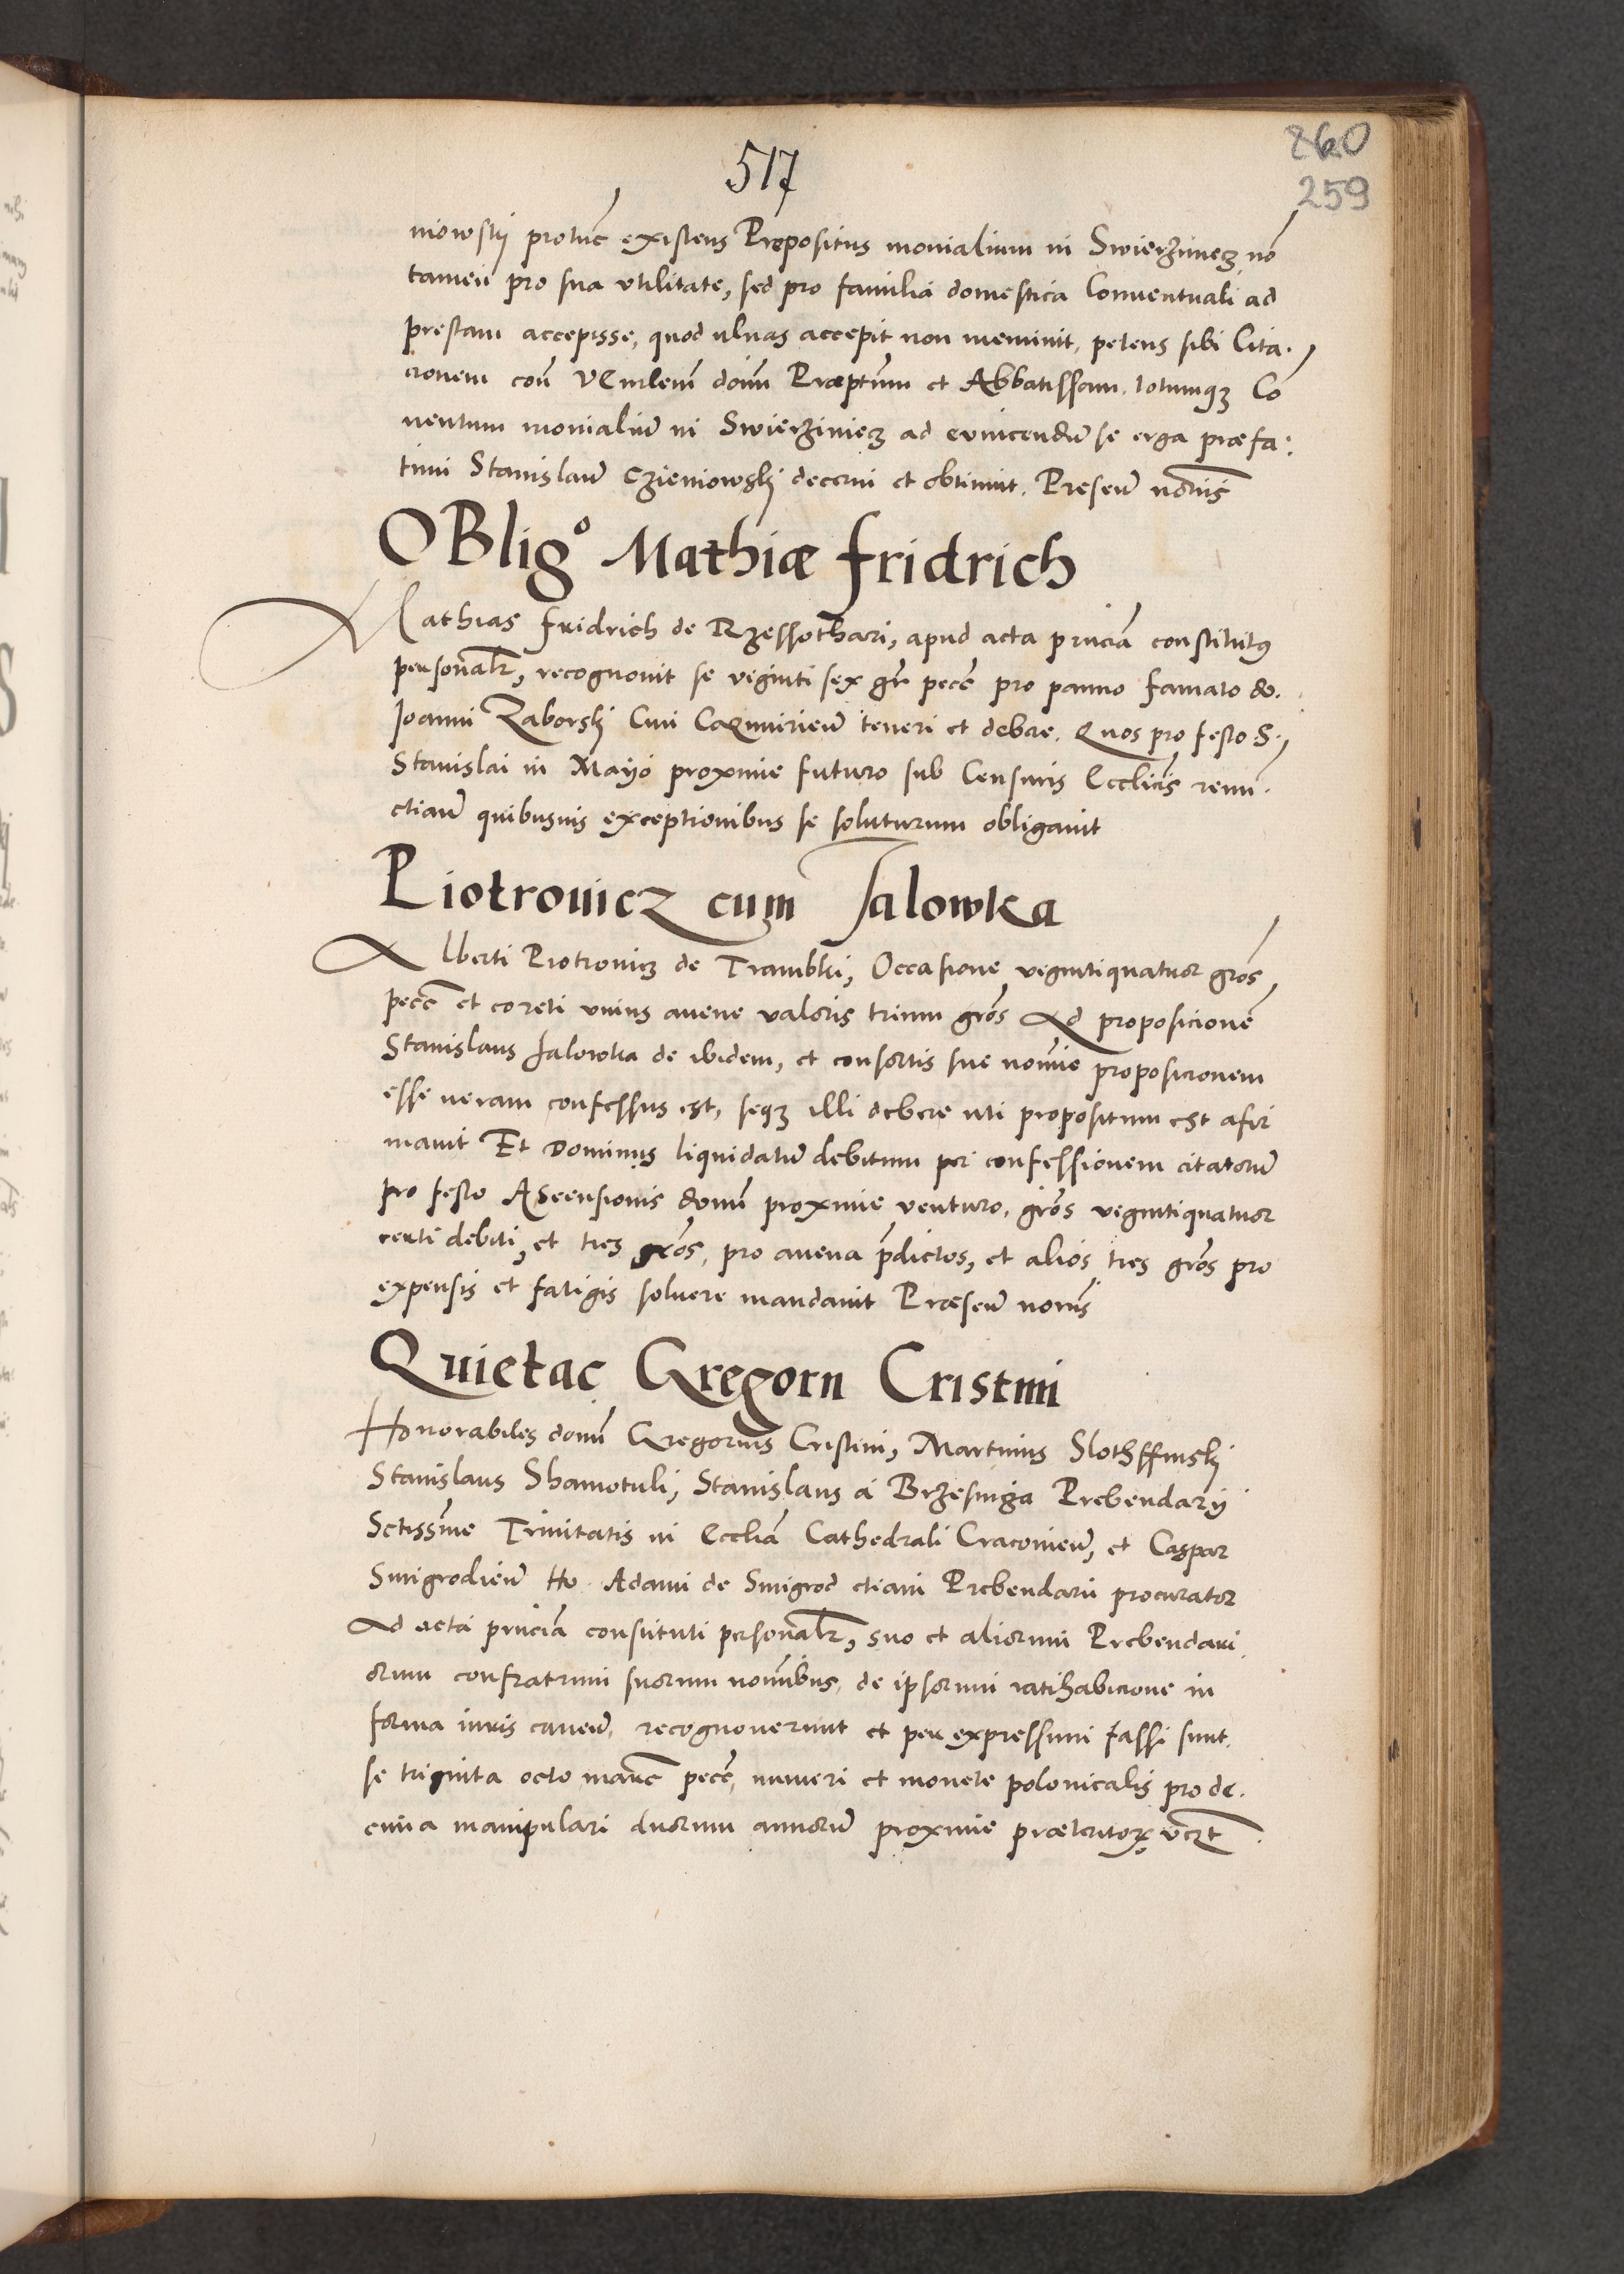 260
517
259
niowsky protūc existens Prepositus monialium in Swierzinecz nō
tamen pro sua vtilitate, sed pro familia domestica Conuentuali ad
prestam accepisse, quod ulnas accepit non meminit, petens sibi Cita.
cionem coñ Vēn̄lem dom̄ Præpt̄um et Abbatissam totumqȝ Co
nuentum monialiū in Swierziniecz ad euincendū se erga præfa:
tum Stanislaū Czieniowskj decerni et obtinuit. Presen̄ non̄is
OBligᵒ Mathiæ fridrich
Mathias fridrich de Rzessothari, apud acta pn̄cia constitutꝰ
personalr̄, recognouit se viginti sex gr̄ pec̄ pro panno famato do.
Joanni Zaborskj Ciui Cazimirien̄ teneri et debere. Quos pro festo S.
Stanislai in Mayo proxime futuro sub Censuris Eccl̄icis renun
ctian̄ quibusuis exceptionibus se soluturum obligauit
Piotrouicz cum Jalowka
Alberti Piotrouicz de Trambki, Occasione vigintiquatuor gros̄
pec̄ et coreti vnius auene valoris trium gros̄ Ad proposicionē
Stanislaus Jalowka de ibidem, et consortis sue nomīe proposicionem
esse ueram confessus est, seqȝ illi debere uti propositum est afir
mauit Et Dominus liquidatū debitum per confessionem citatorū
pro festo Ascensionis dom̄ proxime venturo, gros̄ vigintiquatuor
certi debiti, et tres gros̄, pro auena p̄dictos, et alios tres gros̄ pro
expensis et fatigis soluere mandauit Præsen̄ non̄is
Quietac Gregorii Cristini
Honorabiles dom̄ Gregorius Cristini, Martinus Slothffinskj
Stanislaus Shamotuli, Stanislaus a Brzesinga Prebendarij
Sctissīme Trinitatis in Eccl̄ia Cathedrali Cracouien̄, et Caspar
Smigrodien̄ Ho. Adami de Smigrod etiam Prebendarii procurator
Ad acta pn̄cia constituti personalr̄, suo et aliorum Prebendari
orum confratrum suorum nomībus, de ipsorum ratihabicione in
forma iuris cauen̄, recognouerunt et per expressum fassi sunt
se triginta octo marc̄ pec̄, numeri et monete polonicalis pro de.
cima manipulari duorum annorū proxime præteritoꝝ